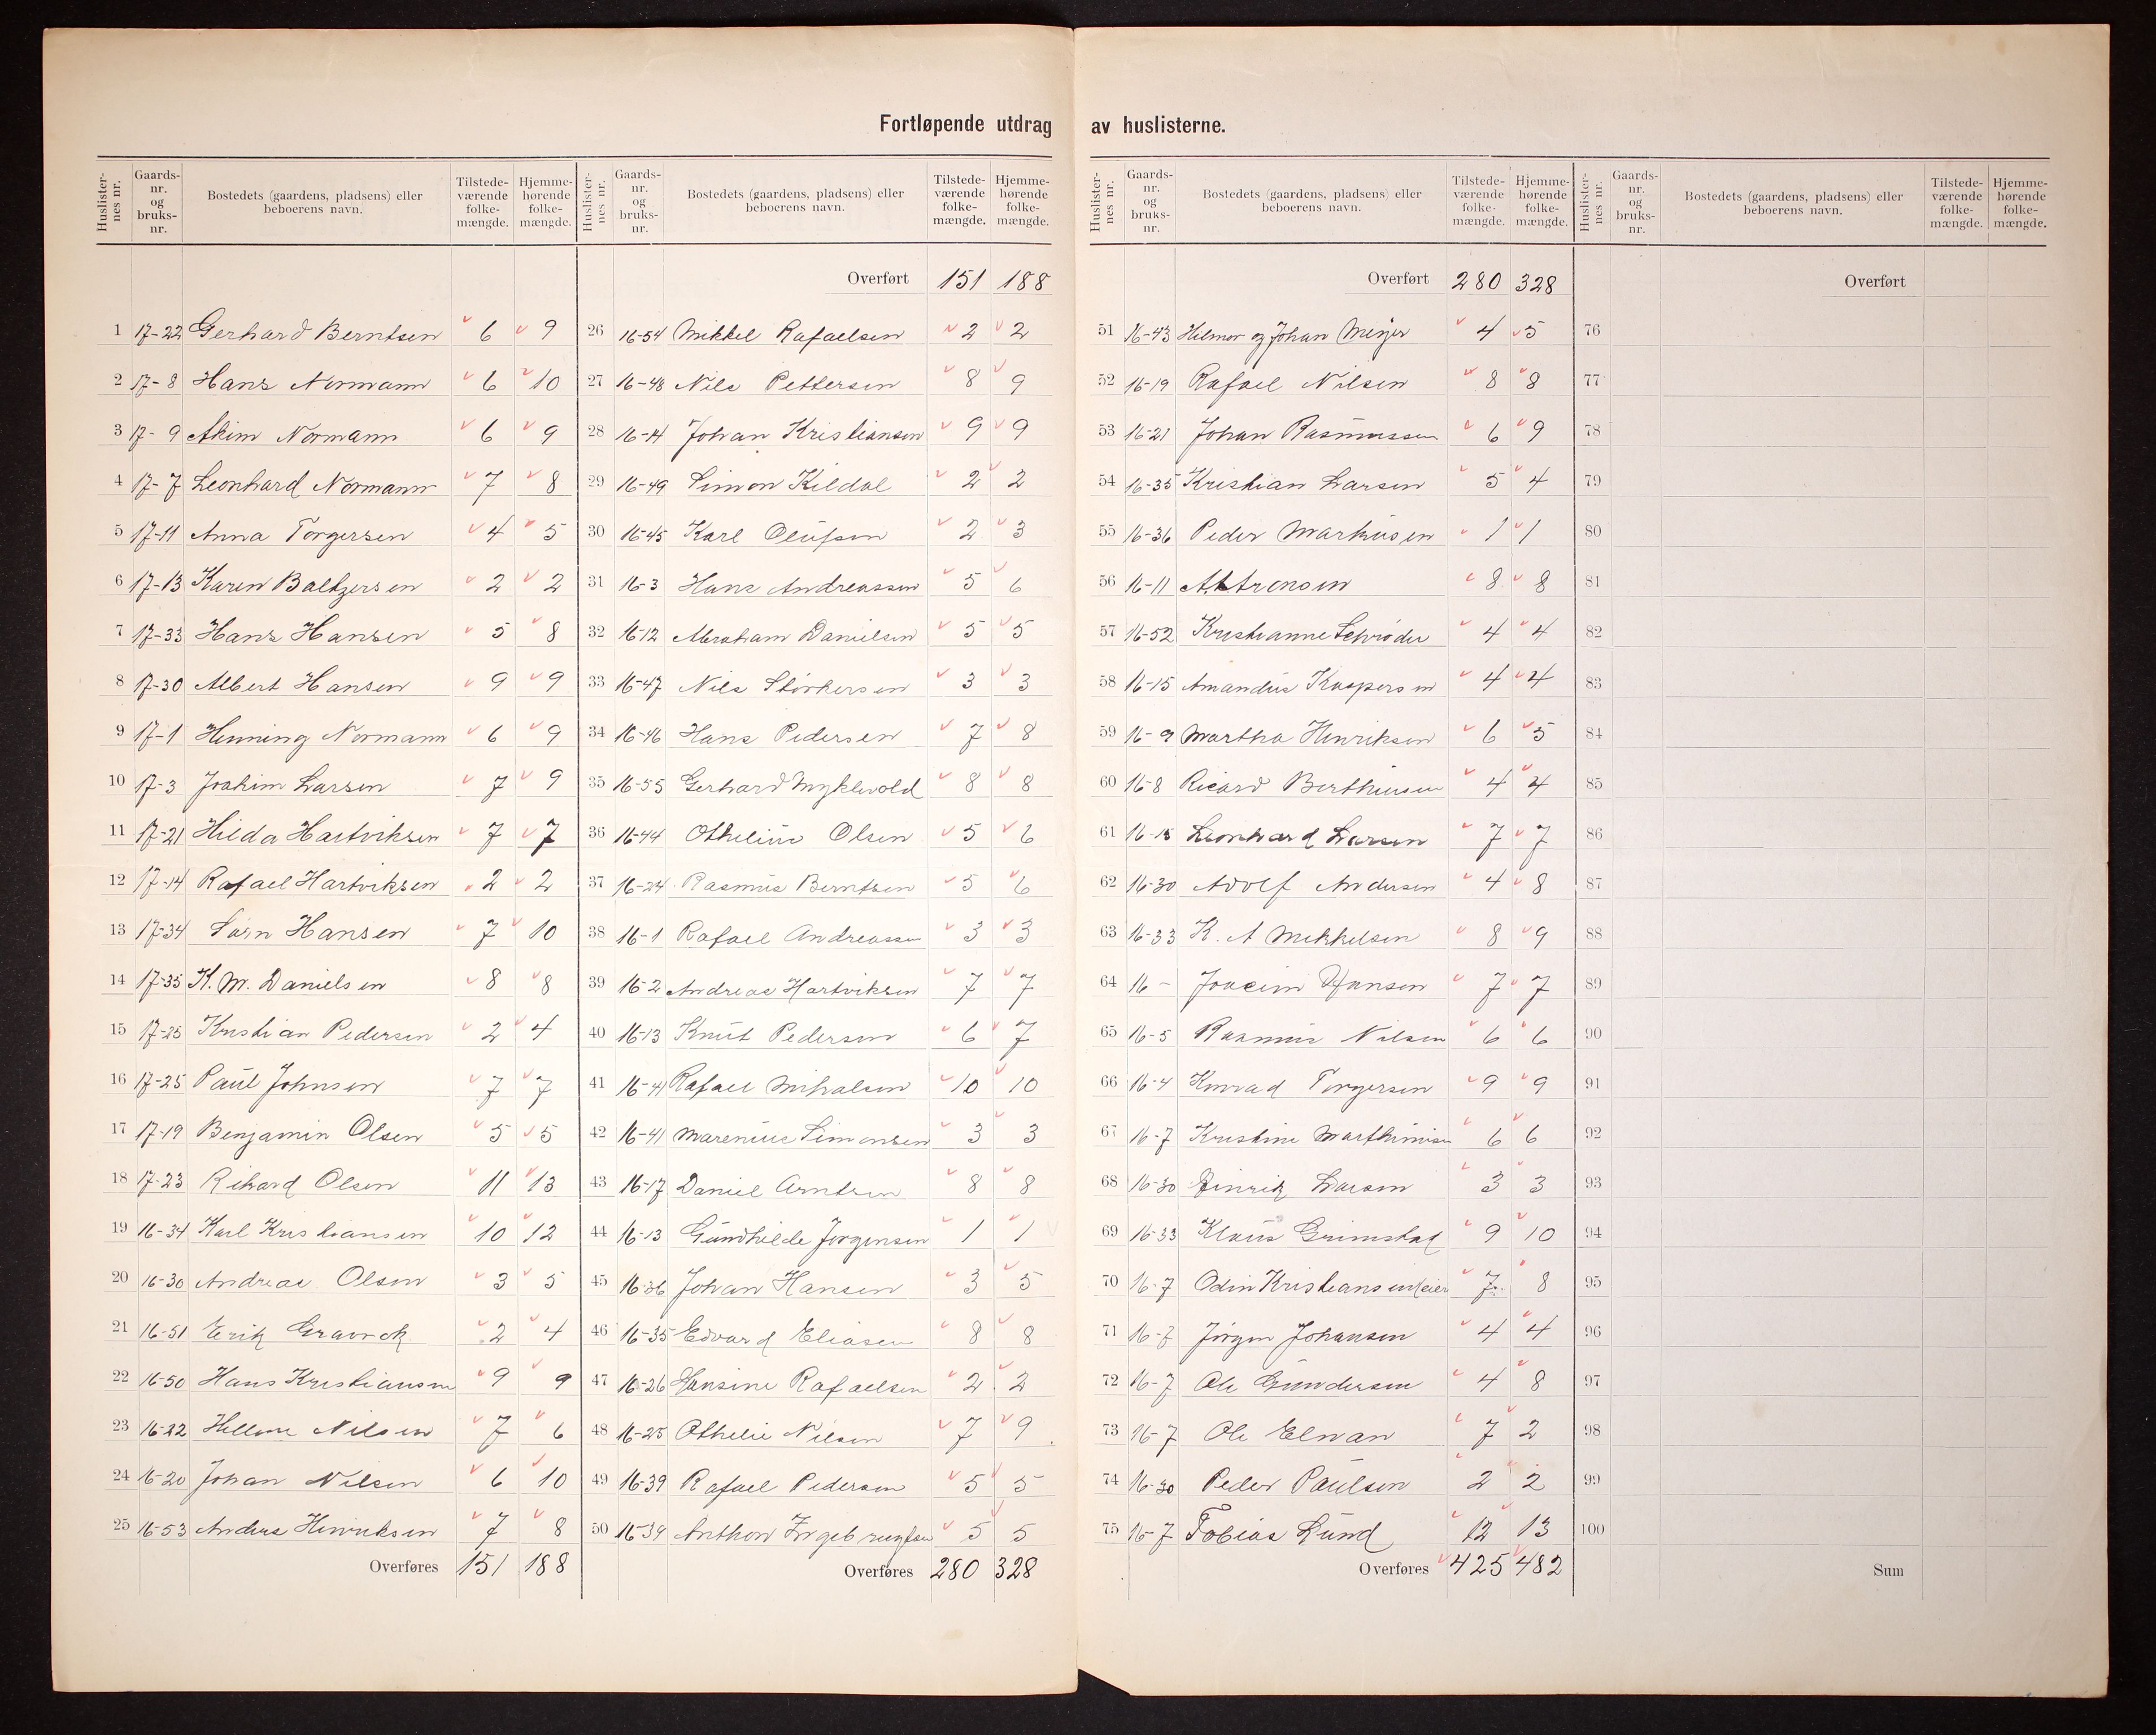 Fortløpende utdrag av huslisterne.
Huslisternes nr. Gaardsnr. og bruksnr. Bostedets (gaardens, pladsens) eller beboerens navn. Tilstedeværende folkemængde. Hjemmehørende folkemængde.
1 17-22 Gerhard Berntsen 6 9
2 17-8 Hans Normann 6 10
3 17-9 Akim Normann 6 9
4 17-7 Leonhard Normann 7 8
5 17-11 Anna Torgersen 4 5
6 17-13 Karen Baltzersen 2 2
7 17-33 Hans Hansen 5 8
8 17-30 Albert Hansen 9 9
9 17-1 Henning Normann 6 9
10 17-3 Joakim Larsen 7 9
11 17-21 Hilda Hartviksen 7 7
12 17-14 Rafael Hartviksen 2 2
13 17-34 Sørn Hansen 7 10
14 17-35 K. M. Danielsen 8 8
15 17-25 Kristian Pedersen 2 4
16 17-25 Paul Johnsen 7 7
17 17-19 Benjamin Olsen 5 5
18 17-23 Rikard Olsen 11 13
19 16-34 Karl Kristiansen 10 12
20 16-30 Andreas Olsen 3 5
21 16-51 Erik Gravrok 2 4
22 16-50 Hans Kristiansen 9 9
23 16-22 Hellene Nilsen 7 6
24 16-20 Johan Nilsen 6 10
25 16-53 Anders Henriksen 7 8
Overføres 151 188
Huslisternes nr. Gaardsnr. og bruksnr. Bostedets (gaardens, pladsens) eller beboerens navn. Tilstedeværende folkemængde. Hjemmehørende folkemængde.
Overført 151 188
26 16-54 Mikkel Rafaelsen 2 2
27 16-48 Nils Pettersen 8 9
28 16-14 Johan Kristiansen 9 9
29 16-49 Simon Kildal 2 2
30 16-45 Karl Olufsen 2 3
31 16-3 Hans Andreassen 5 6
32 16-12 Abraham Danielsen 5 5
33 16-47 Nils Størkersen 3 3
34 16-46 Hans Pedersen 7 8
35 16-55 Gerhard Myklevold 8 8
36 16-44 Othelius Olsen 5 6
37 16-24 Rasmus Berntsen 5 6
38 16-1 Rafael Andreassen 3 3
39 16-2 Andreas Hartviksen 7 7
40 16-13 Knut Pedersen 6 7
41 16-41 Rafael Mikalsen 10 10
42 16-41 Marenius Simonsen 3 3
43 16-17 Daniel Arntsen 8 8
44 16-13 Gundhilde Jørgensen 1 1
45 16-36 Johan Hansen 3 5
46 16-35 Edvard Eliasen 8 8
47 16-26 Hansine Rafaelsen 2 2
48 16-25 Othelie Nilsen 7 9
49 16-39 Rafael Pedersen 5 5
50 16-39 Anthon Ingebrigtsen 5 5
Overføres 280 328
Huslisternes nr. Gaardsnr. og bruksnr. Bostedets (gaardens, pladsens) eller beboerens navn. Tilstedeværende folkemængde. Hjemmehørende folkemængde.
Overført 280 328
51 16-43 Hilmor og Johan Meijer 4 5
52 16-19 Rafael Nilsen 8 8
53 16-21 Johan Rasmussen 6 9
54 16-35 Kristian Larsen 5 4
55 16-36 Peder Markusen 1 1
56 16-11 8 8
57 16-52 Kristianne Schrøder 4 4
58 16-15 Amandus Kaspersen 4 4
59 16-9 Martha Henriksen 6 5
60 16-8 Ricard Bertheusen 4 4
61 16-15 Leonhard Larsen 7 7
62 16-30 Adolf Andersen 4 8
63 16-33 K. A Mikkelsen 8 9
64 16- Joacim Hansen 7 7
65 16-5 Rasmus Nilsen 6 6
66 16-4 Konrad Torgersen 9 9
67 16-7 Kristine Marthinisen 6 6
68 16-30 Hinrik Larsen 3 3
69 16-33 Klaus Grimstad 9 10
70 16-7 Odin Kristiansen 7 8
71 16-7 Jørgen Johansen 4 4
72 16-7 Ole Gundersen 4 8
73 16-7 Ole Elvan 7 2
74 16-30 Peder Paulsen 2 2
75 16-7 Tobias Lund 12 13
Overføres 425 482
Huslisternes nr. Gaardsnr. og bruksnr. Bostedets (gaardens, pladsens) eller beboerens navn. Tilstedeværende folkemængde. Hjemmehørende folkemængde.
Overført
76
77
78
79
80
81
82
83
84
85
86
87
88
89
90
91
92
93
94
95
96
97
98
99
100
Sum